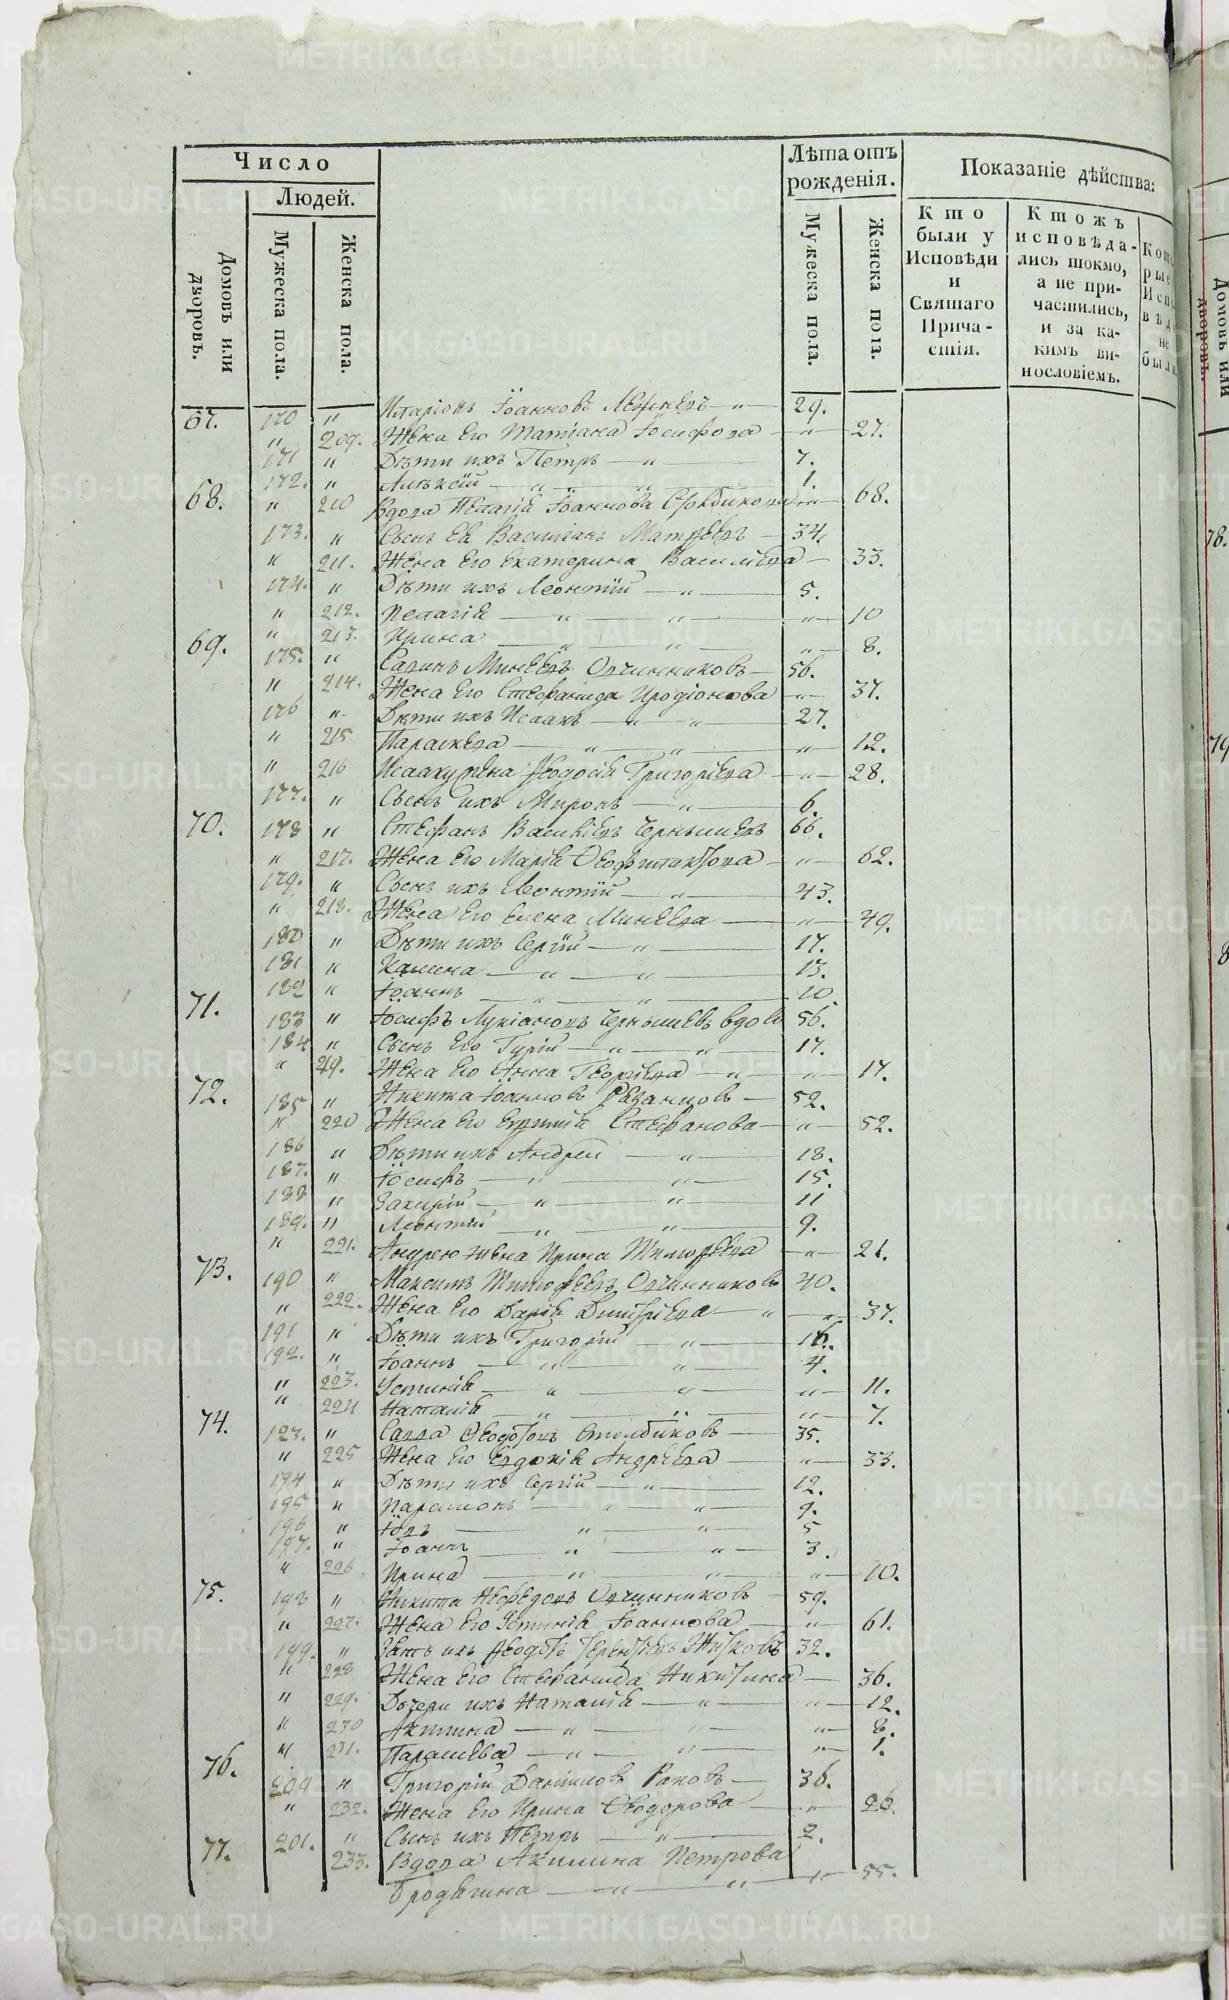 Число
Людей.
Домовъ или дворовъ.
Мужеска пола.
Женска пола.
Лѣта отъ рожденія.
Мужеска пола.
Женска пола.
Показаніе дѣйства:
Кто были у Исповѣди и Святаго Причастія.
Ктожъ исповѣдались токмо, а не причастились, и за какимъ винословіемъ.
67. 170 " Иларіонъ Іоанновъ " 29.
" 209. Жена его Татіана Іосифова " 27.
171 " Дѣти ихъ Петръ " 7.
172. " Алексій " " 1.
68. " 210 Вдова Пелагія Іоаннова " 68.
173. " Сынъ ея 34.
" 211. Жена его Екатерина Васильева 33.
174. " Дѣти ихъ Леонтій " 5.
" 212. Пелагія " " " 10
" 213. Ирина " " " 8.
69. 175. " Савинъ Минеевъ Овчинниковъ 56.
" 214. Жена его Стефанида Иродіонова " 37.
176 " Дѣти ихъ Исаакъ " " 27.
" 215 Параскева " " " 12.
" 216 Ѳеодосія Григорьева " 28.
177. " Сынъ ихъ Миронъ " 6.
70. 178 " Стефанъ Чернышевъ 66.
" 217. Жена его Марія " 62.
179. " Сынъ ихъ Леонтій " 43.
" 218. Жена его Елена Минеева " 49.
180 " Дѣти ихъ Сергій " 17.
181 " " " 13.
182 " Іоаннъ " " 10
71. 183 " Іосифъ Лукіановъ Чернышевъ вдовъ 56.
184. " Сынъ его Гурій " " 17.
" Жена его Анна Георгіева " " 17.
72. 185 " Никита Іоанновъ 52.
" 220 Жена его Стефанова " 52.
186 " Дѣти ихъ Андрей " 18.
187. " Іосифъ " " 15.
188 " Захарій " " 11
189. " Леонтій " " 9.
" 221. Андрею жена Ирина Тимофеева " 21.
73. 190 " Максимъ Тимофеевъ Овчинниковъ 40.
" 222. Жена его Дарія Димитріева " " 37.
191 " Дѣти ихъ Григорій "
192. " Іоаннъ " " 4.
" 223. Устинія " " " 11.
" 224 Наталія " " " 7.
74. 193. " Савва Столбиковъ 35.
" 225 Жена его Евдокія Андреева " 33.
194 " Дѣти ихъ Сергій " 12.
195 " Парамонъ " " 9.
196 " Іовъ " " 5
197. " Іоаннъ " " 3.
" 226 Ирина " " " 10.
75. 198 " Никита Овчинниковъ 59.
" 227. Жена его Устинія Іоаннова " 61.
199. " Зять ихъ 32.
" 228 Жена его Стефанида Никитина 36.
" 229. Дочери ихъ Наталія " " 12.
" 230 Акилина " " " 8.
" 231. " " " 1.
76. " Григорій Даниловъ Раковъ 36.
" 232. Жена его Ирина Ѳеодорова " 26.
201. " Сынъ ихъ Петръ " 2.
77. 233. Вдова Акилина Петрова
Бродягина " " " 55.